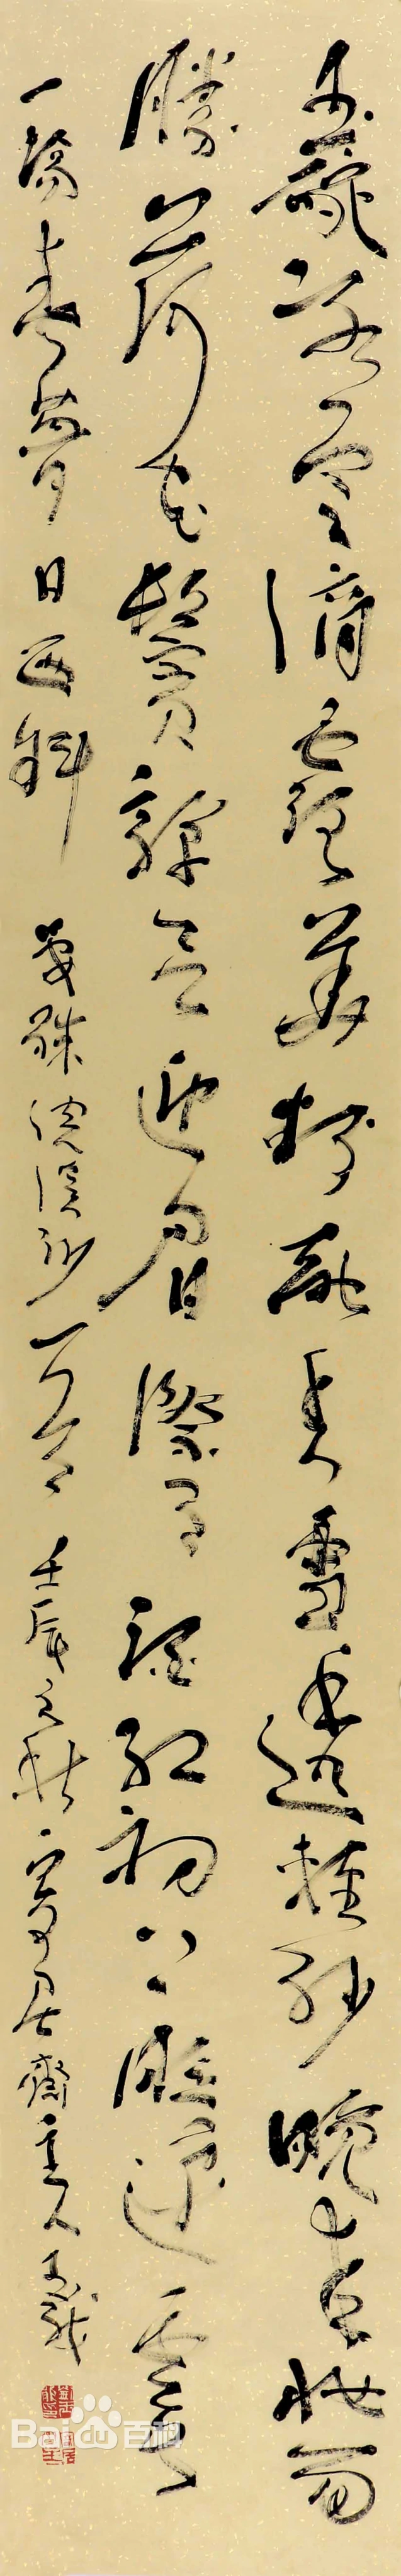 玉碗冰寒滴露華粉融香雪透輕紗晚來妝面
勝荷花鬢嚲欲迎眉際月酒紅初上臉邊霞
一場春夢日西斜 晏殊浣溪沙一首 壬辰之秋 居齋主人
Bai百科